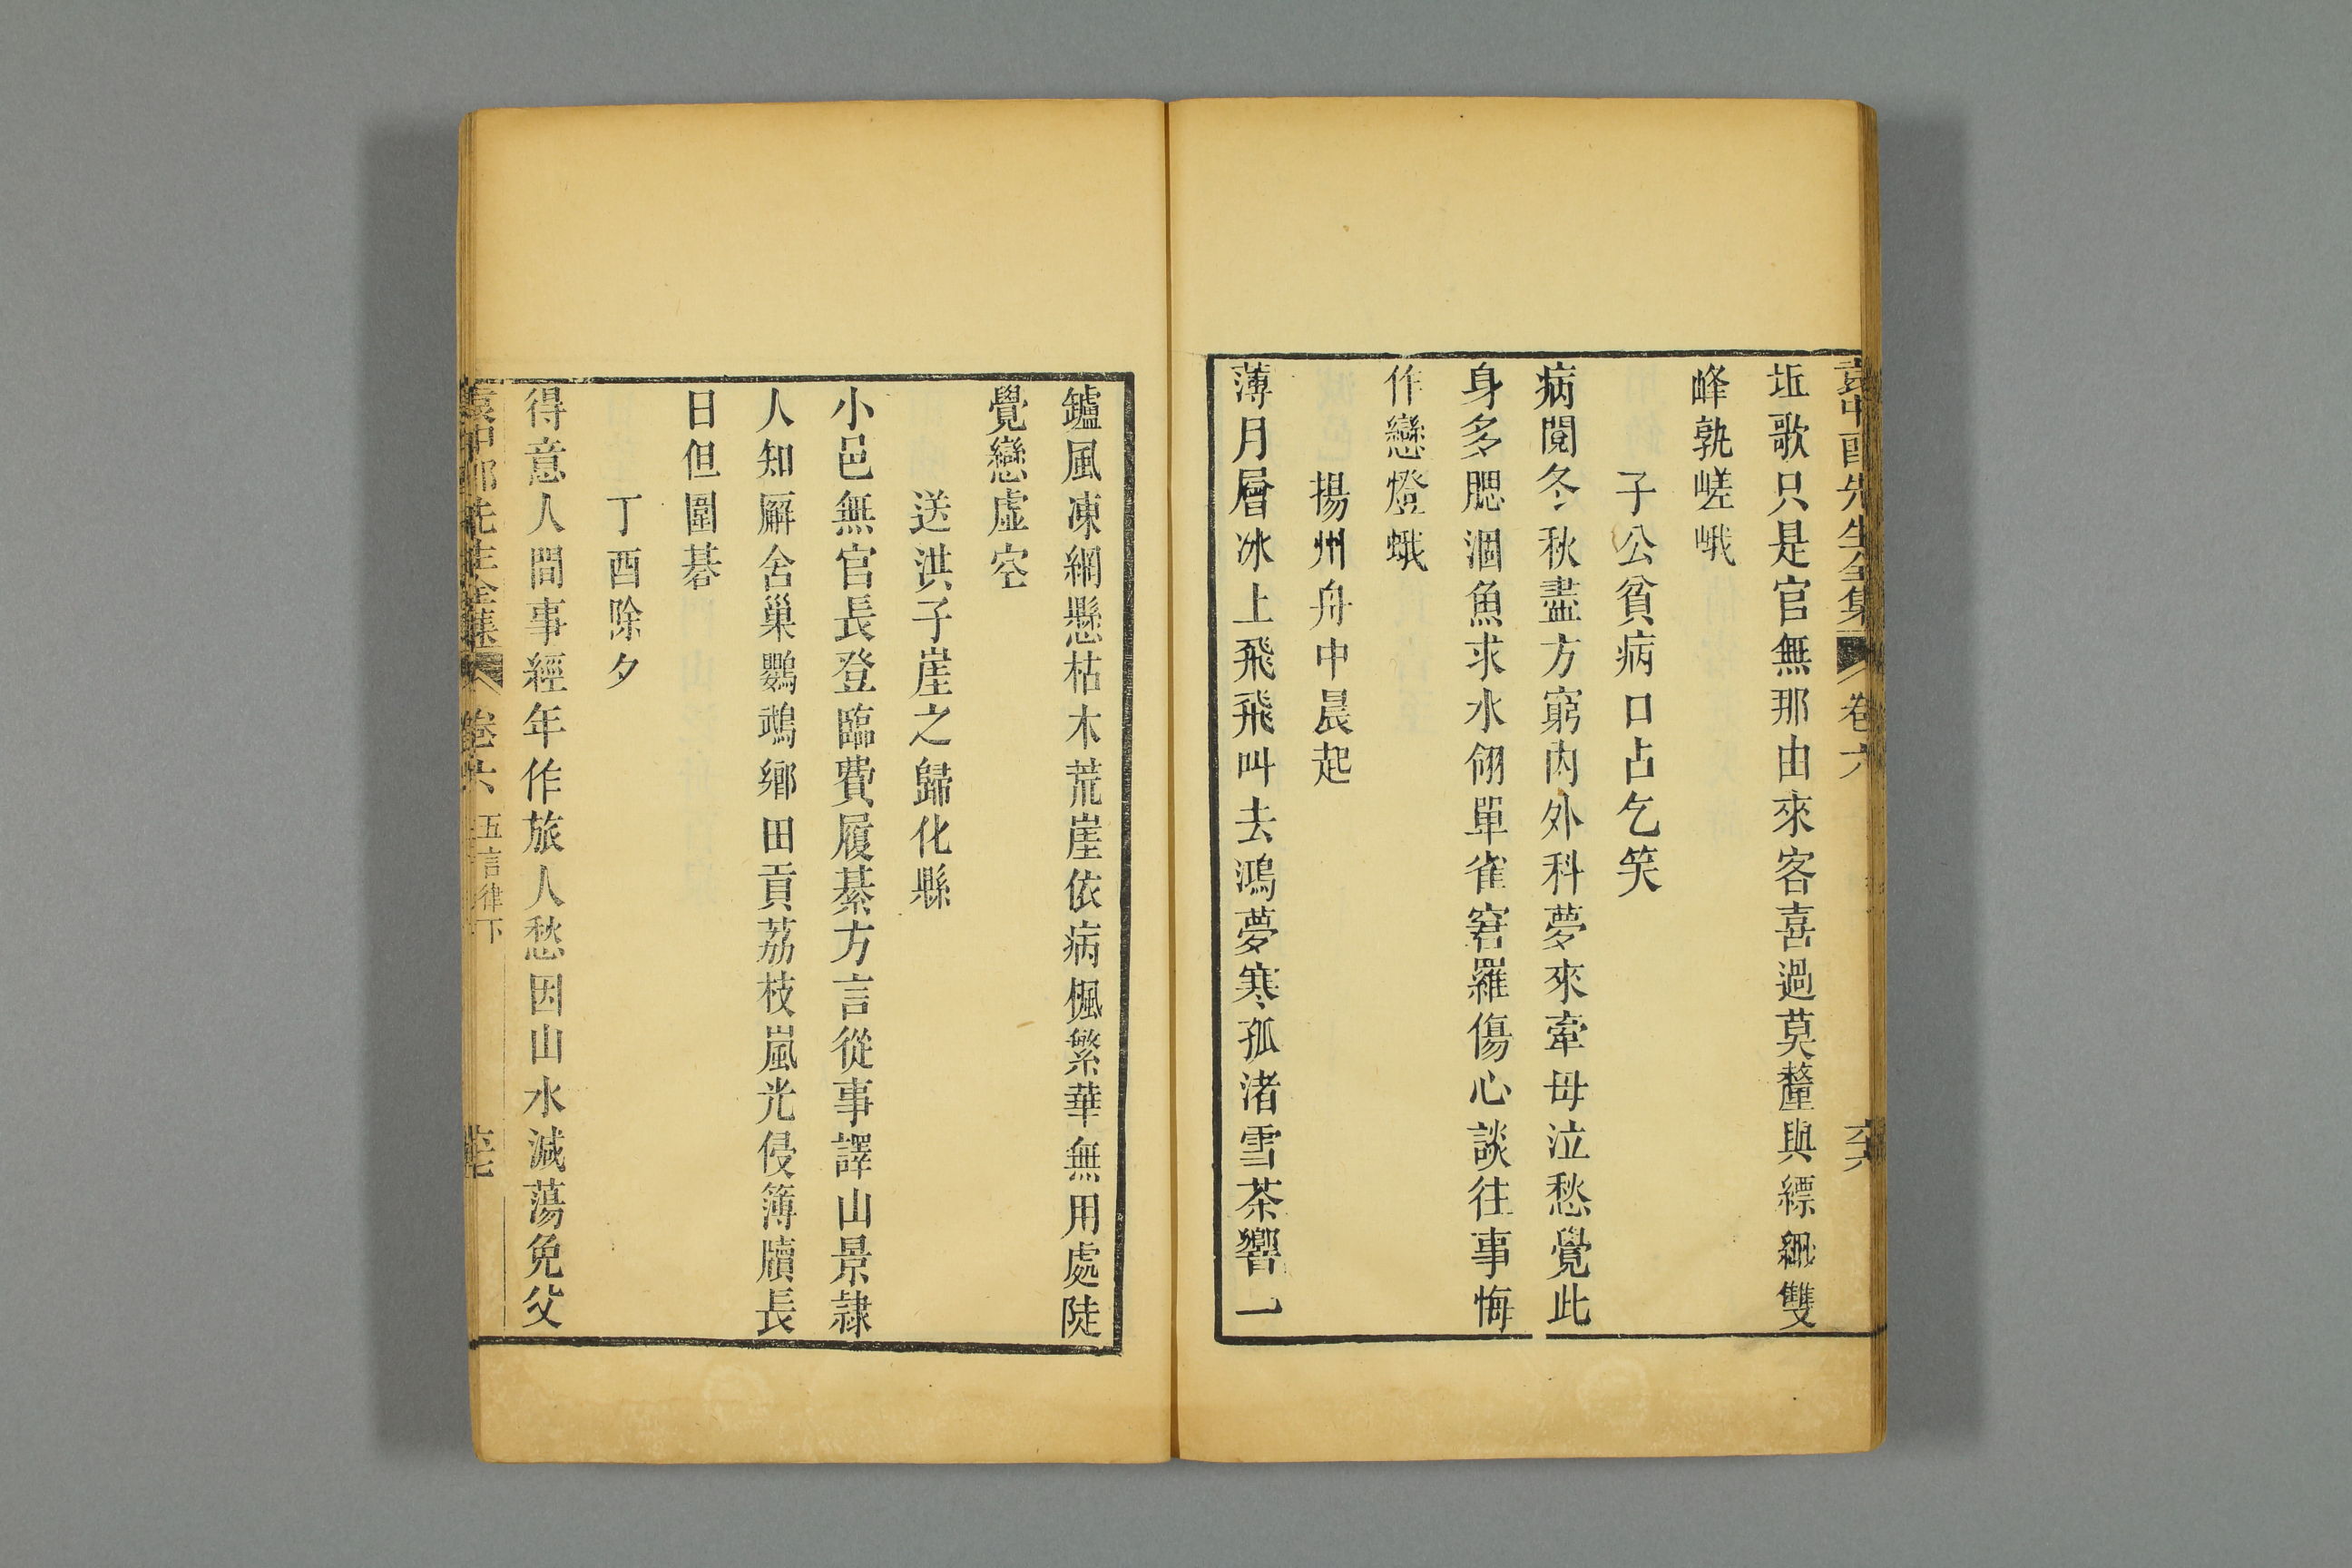 袁中郎先生全集 卷六 六
坵歌只是官無那由來客喜過莫釐與縹緲雙
峰孰嵯峨
子公貧病口占乞笑
病閱冬秋盡方窮內外科夢來牽母泣愁覺此
身多腮涸魚求水翎單雀窘羅傷心談往事悔
作戀燈蛾
揚州舟中晨起
薄月層冰上飛飛叫去鴻夢寒孤渚雪茶響一
鑪風凍網懸枯木荒崖依病楓繁華無用處陡
覺戀虛空
送洪子崖之歸化縣
小邑無官長登臨費履綦方言從事譯山景隷
人知廨舍巢鸚鵡鄉田貢荔枝嵐光侵簿牘長
日但圍棊
丁酉除夕
得意人間事經年作旅人愁因山水減蕩免父
袁中郎先生全集 卷六 五言律下